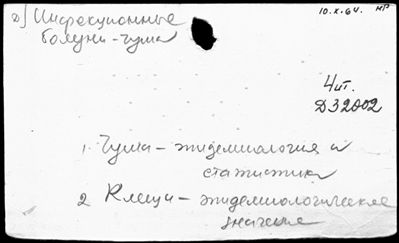 д) Инфекционные
болезни - чума
10.X.64. НР
4 шт.
Д32002
1. Чума - эпидемиология и
статистика
2 Клещи - эпидемиологическое
значение